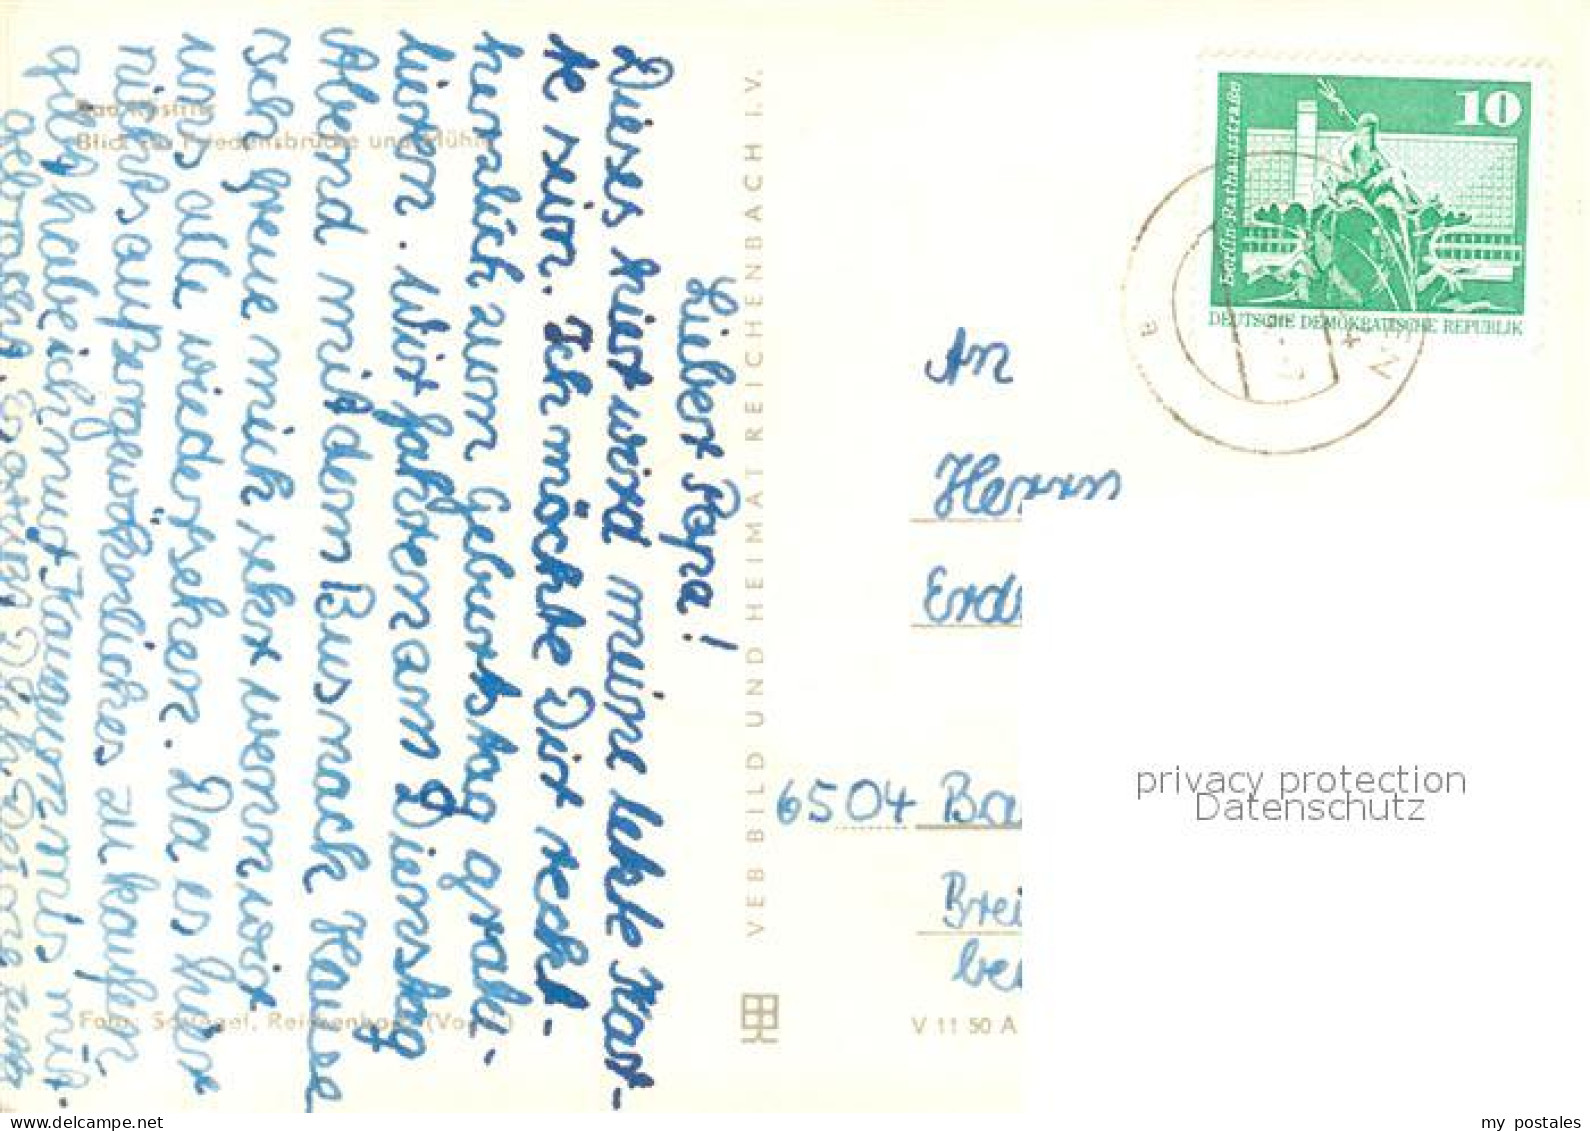 Lieber Papa!
Dieses hier wird meine letzte Kar-
te sein. Ich möchte Dir recht
herzlich zum Geburtstag gratu-
lieren. Wir fahren am Dienstag
Abend mit dem Bus nach Hause
Ich freue mich sehr wenn wir
uns alle wiedersehen. Da es hier
nichts außergewöhnliches zu kaufen
gibt habe ich mit
Bad Köstritz
Blick zur Friedensbrücke und Mühle
Foto: Reichenbach (Vogtl.)
VEB BILD UND HEIMAT REICHENBACH I.V.
V 11 50 A
10
Berlin-Rathausstraße
DEUTSCHE DEMOKRATISCHE REPUBLIK
a
An
Herrn
Erd
6504 Ba
Brei
bei
privacy protection
Datenschutz
my postales